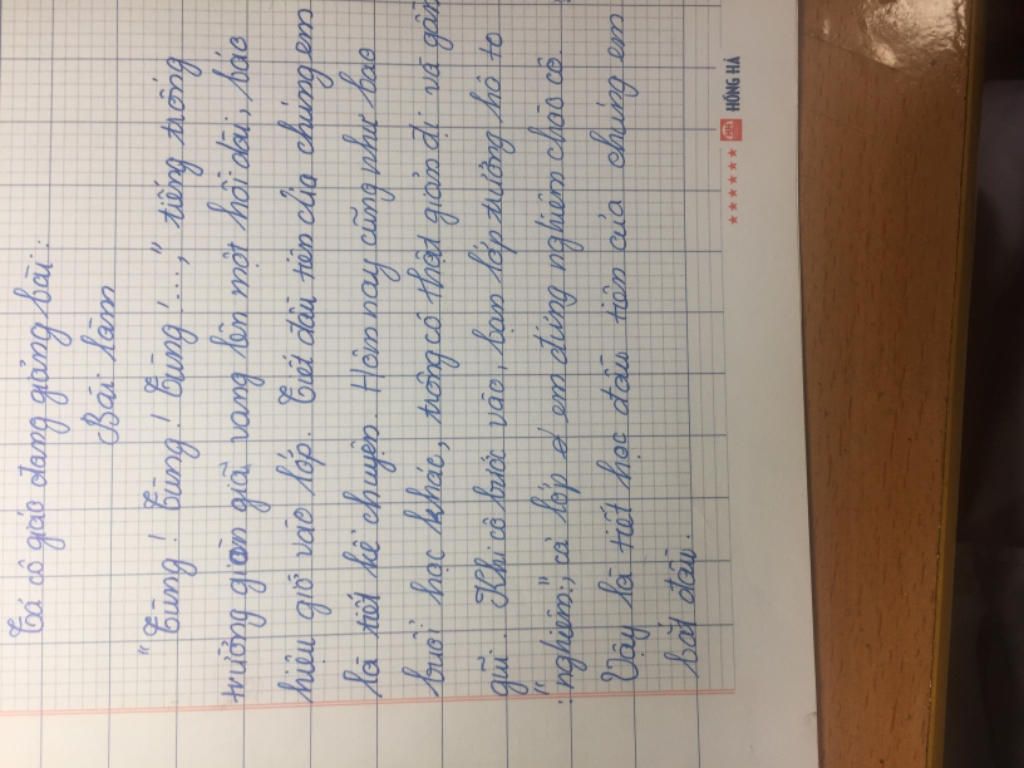 Tả cô giáo đang giảng bài:
Bài làm
"Tùng! Tùng! Tùng!...," tiếng trống
trường giòn giã vang lên một hồi dài, báo
hiệu giờ vào lớp. Tiết đầu tiên của chúng em
là tiết kể chuyện. Hôm nay cũng như bao
buổi học khác, trông cô thật giản dị và gần
gũi. Khi cô bước vào, bạn lớp trưởng hô to
"nghiêm!", cả lớp em đứng nghiêm chào cô.
Vậy là tiết học đầu tiên của chúng em
bắt đầu.
HỒNG HÀ